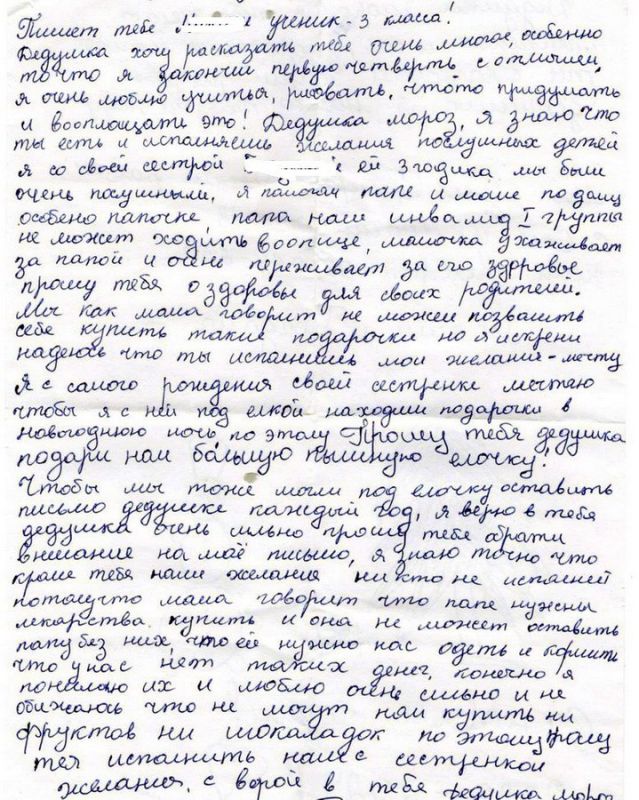 Пишет тебе М е ученик - 3 класса!
Дедушка хочу расказать тебе очень многое, особенно
то что я закончил первую четверть с отличием,
я очень люблю учиться, рисовать, чтото придумать
и вооплощать это! Дедушка мороз, я знаю что
ты есть и исполняешь желания послушных детей
я со своей сестрой ей 3 годика мы были
очень послушными, я помогал папе и маме по дому
особено папочке папа наш инвалид I группы
не может ходить воопще, мамочка ухаживает
за папой и очень переживает за его здоровье
прошу тебя о здоровье для своих родителей.
Мы как мама говорит не можем позвалить
себе купить такие подарочки но я искрени
надеюсь что ты исполнишь мои желание - мечту
Я с самого рождения своей сестренке мечтаю
чтобы я с ней под елкой находили подарочки в
новогоднюю ночь, по этому Прошу тебя дедушка
подари нам большую пышную елочку!
Чтобы мы тоже могли под елочку оставить
письмо дедушке каждый год, я верю в тебя
дедушка очень сильно прошу тебе обрати
внимание на моё письмо, я знаю точно что
кроме тебя наши желания ни кто не исполнит
потомучто мама говорит что папе нужны
лекарства купить и она не может оставить
папу без них, что ей нужно нас одеть и кормить
что у нас нет таких денег, конечно я
понимаю их и люблю очень сильно и не
обижаюсь что не могут нам купить ни
фруктов ни шокаладок по этому прошу
тея исполнить нам с сестренкой
желания, с верой в тебя дедушка мороз